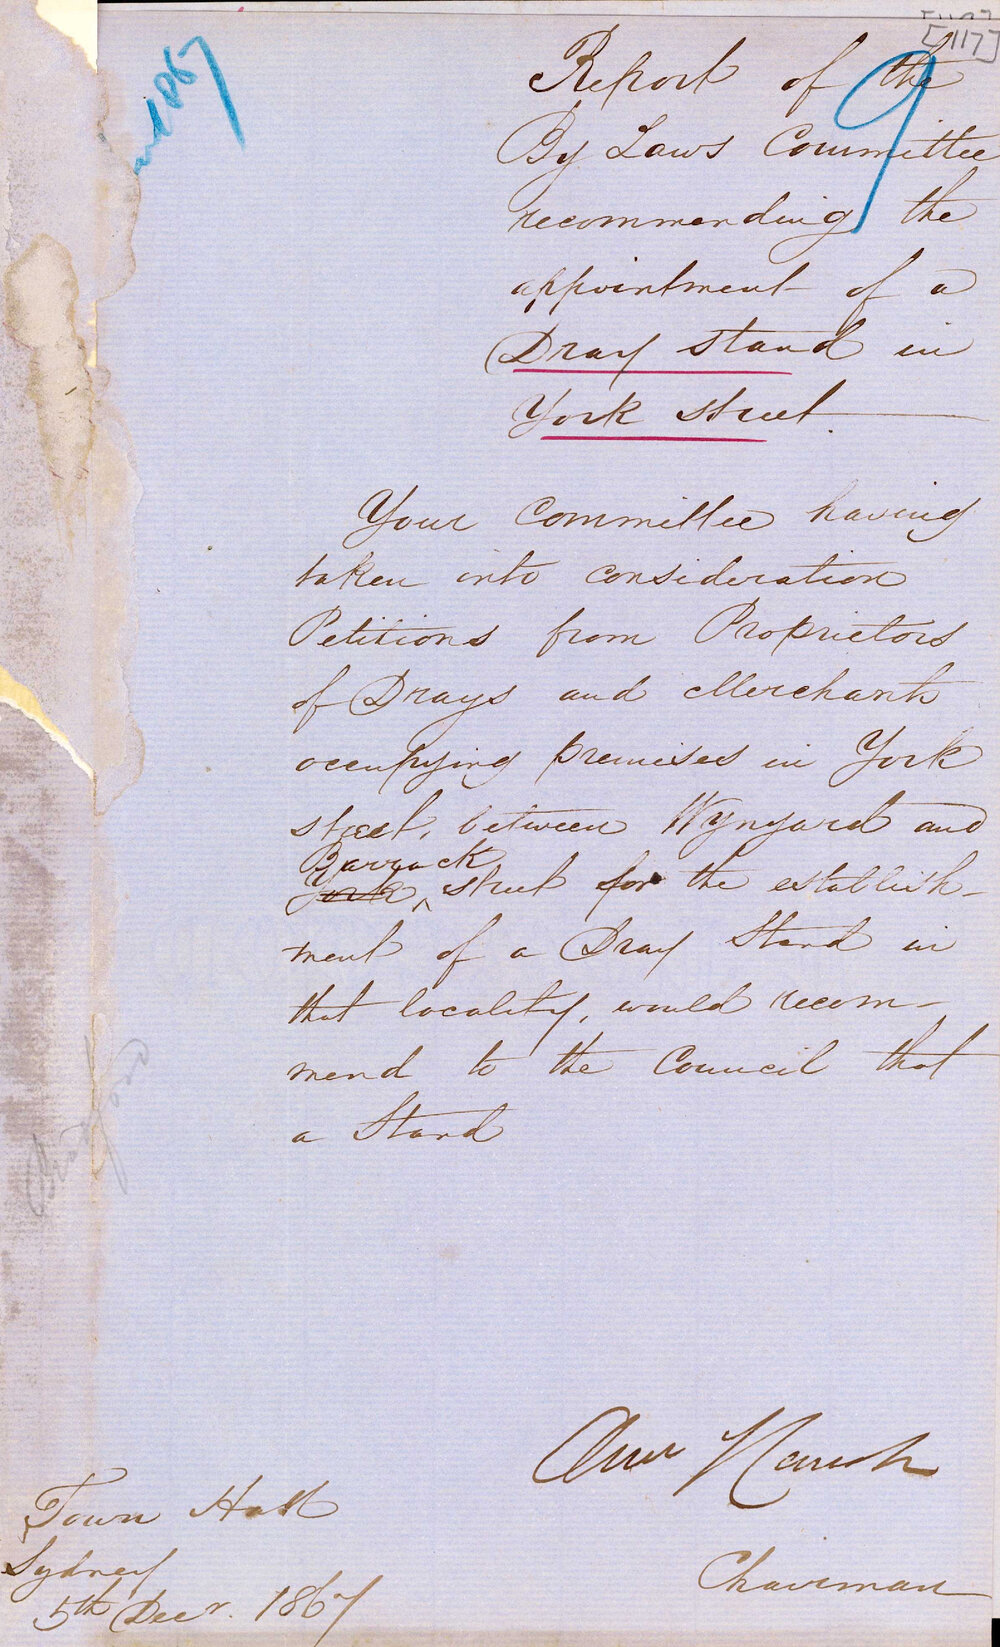 [117]
9
1867
Report of the
By Laws Committee
recommending the
appointment of a
Dray stand in
York street.
Your Committee having
taken into consideration
Petitions from Proprietors
of Drays and Merchants
occupying premises in York
street, between Wynyard and
Barrack
York street for the establish-
ment of a Dray Stand in
that locality, would recom-
mend to the Council that
a Stand
Chairman
Town Hall
Sydney
5th Decr. 1867